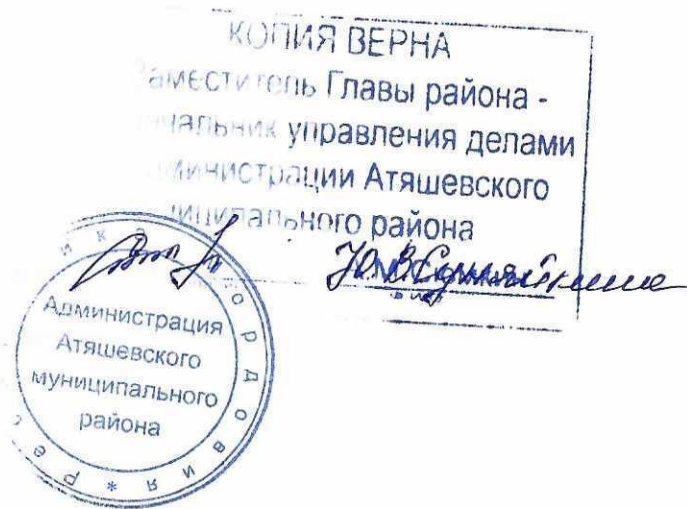 КОПИЯ ВЕРНА
Заместитель Главы района -
начальник управления делами
администрации Атяшевского
муниципального района
Администрация
Атяшевского
муниципального
района
республика мордовия *